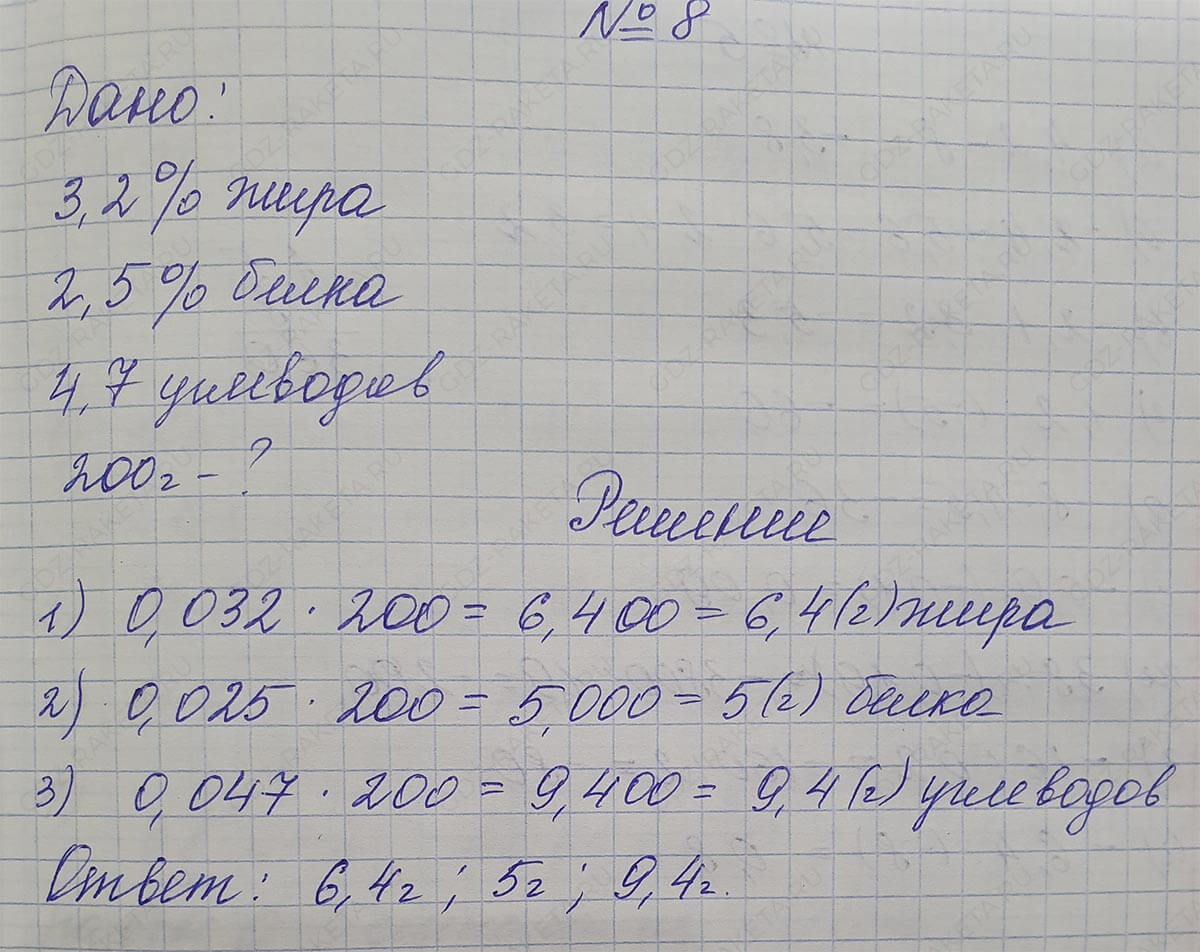 № 8
Дано:
3,2% жира
2,5% белка
4,7 углеводов
200г - ?
Решение
1) 0,032 · 200 = 6,400 = 6,4(г) жира
2) 0,025 · 200 = 5,000 = 5(г) белка
3) 0,047 · 200 = 9,400 = 9,4(г) углеводов
Ответ: 6,4г; 5г; 9,4г.